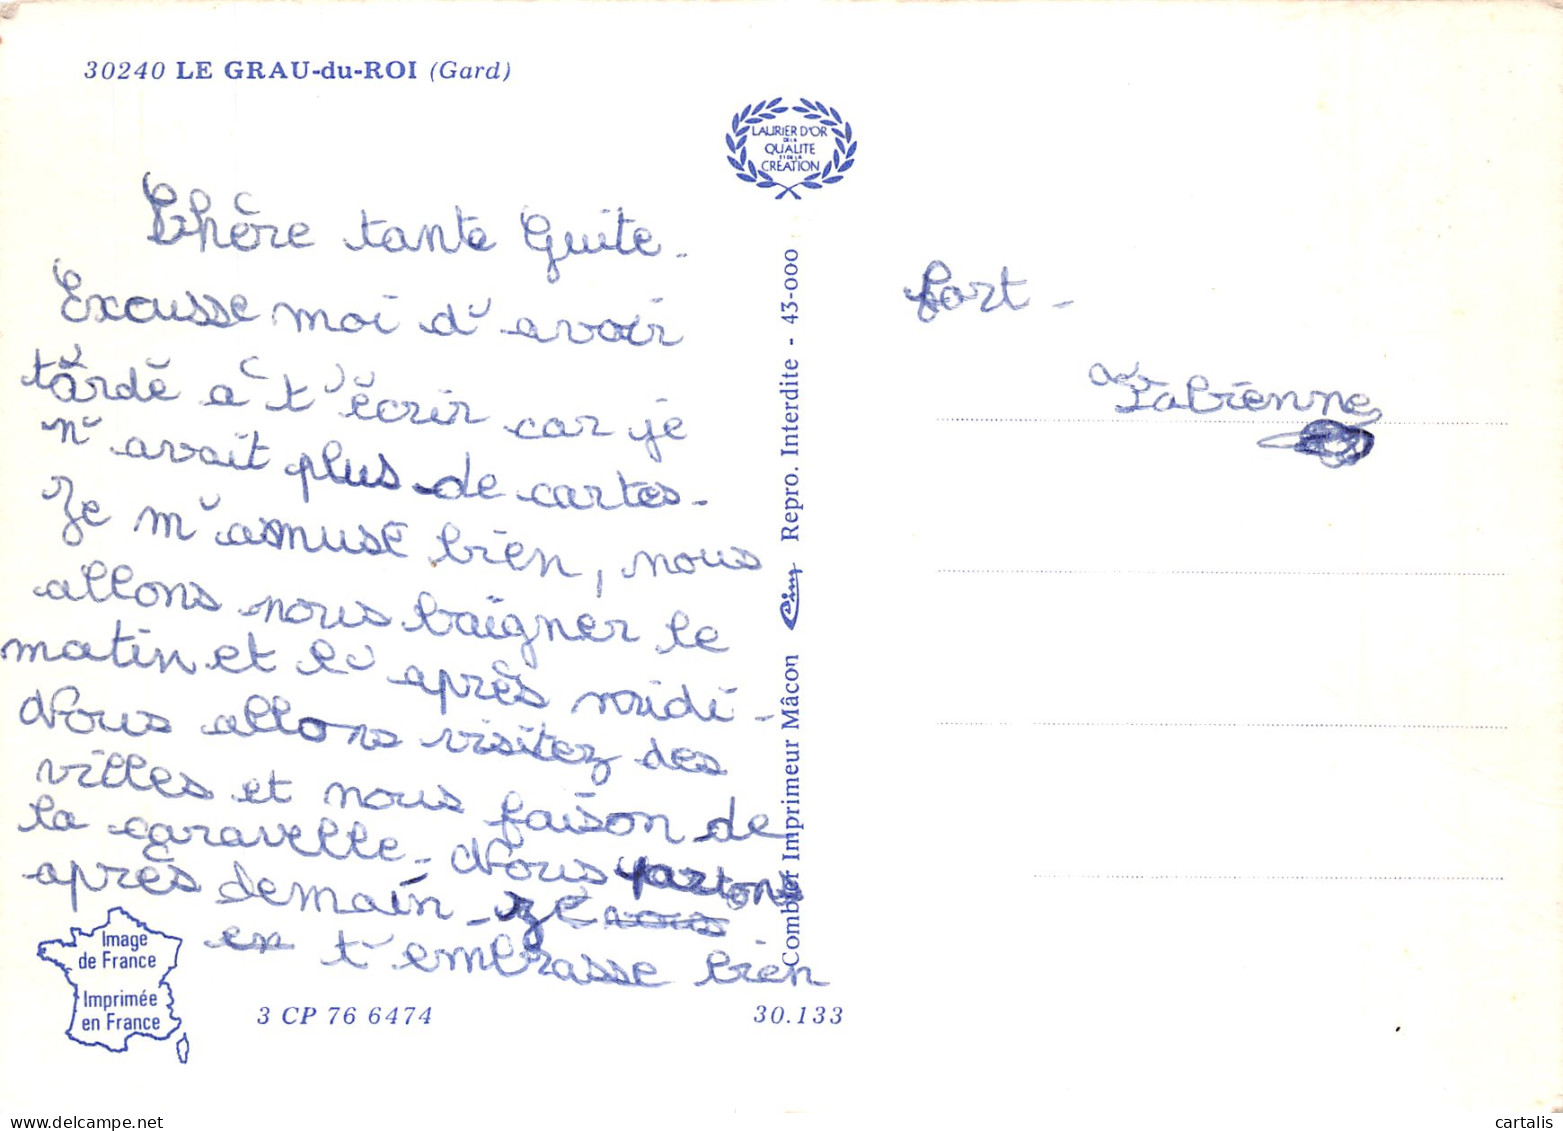 30240 LE GRAU-du-ROI (Gard)
LAURIER D'OR
DE LA
QUALITE
ET DE LA
CREATION
Chère tante Guite.
Excusse moi d'avoir
tardé a t'écrir car je
n'avait plus de cartes.
Je m'amuse bien, nous
allons nous baigner le
matin et l'après midi.
Nous allons visitez des
villes et nous faison de
la caravelle. Nous partons
après demain. Je nous
en t'embrasse bien
fort.
Fabienne
Combier Imprimeur Mâcon Cim Repro. Interdite - 43-000
Image
de France
Imprimée
en France
3 CP 76 6474
30.133
cartalis